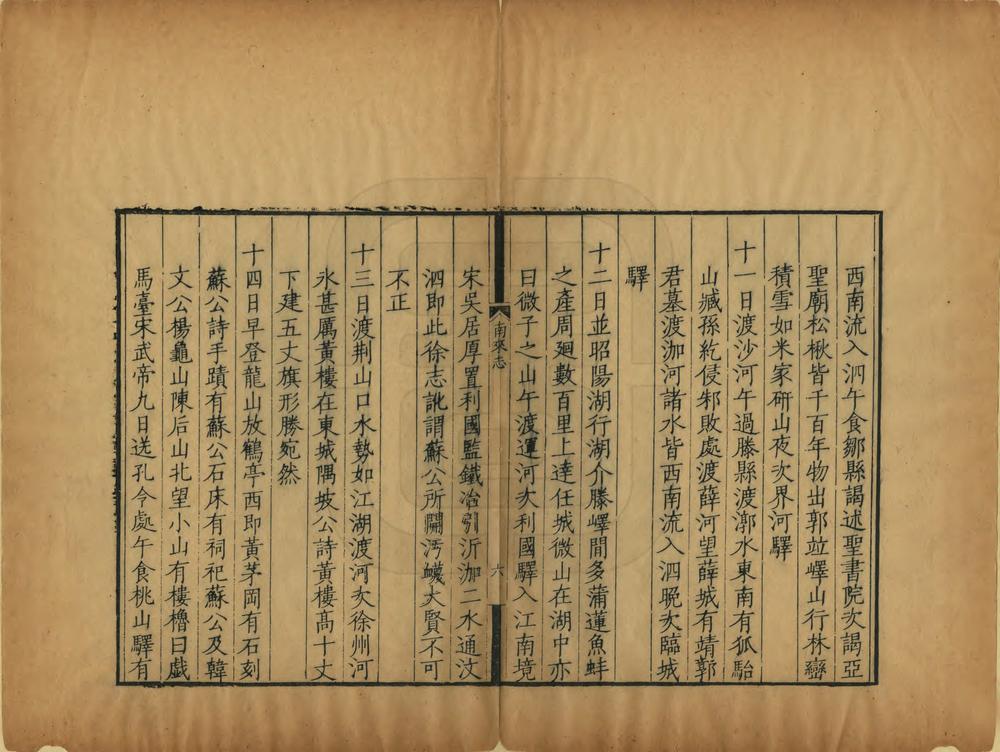 西南流入泗午食鄒縣謁述聖書院次謁亞
聖廟松楸皆千百年物出郭竝嶧山行林巒
積雪如米家研山夜次界河驛
十一日渡沙河午過滕縣渡漷水東南有狐駘
山臧孫紇侵邾敗處渡薛河望薛城有靖郭
君墓渡泇河諸水皆西南流入泗晚次臨城
驛
十二日並昭陽湖行湖介滕嶧閒多蒲蓮魚蚌
之產周廻數百里上達任城微山在湖中亦
曰微子之山午渡運河次利國驛入江南境
南來志
六
宋吳居厚置利國監鐵冶引沂泇二水通汶
泗即此徐志訛謂蘇公所開汚衊大賢不可
不正
十三日渡荆山口水勢如江湖渡河次徐州河
氷甚厲黃樓在東城隅坡公詩黃樓高十丈
下建五丈旗形勝宛然
十四日早登龍山放鶴亭西即黃茅岡有石刻
蘇公詩手蹟有蘇公石床有祠祀蘇公及韓
文公楊龜山陳后山北望小山有樓櫓曰戲
馬臺宋武帝九日送孔令處午食桃山驛有